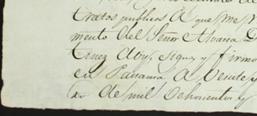 tratos publicos á que me pr
mento del Señor Alvaro D
truez doy, signo y firmo
en Panamá á veinte
de mil ochocientos y